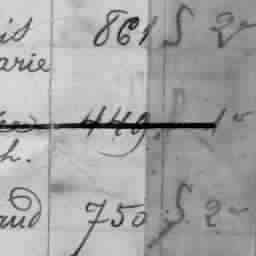 is 861 S 2
arie
449. 1
h.
aud 750 S. 2